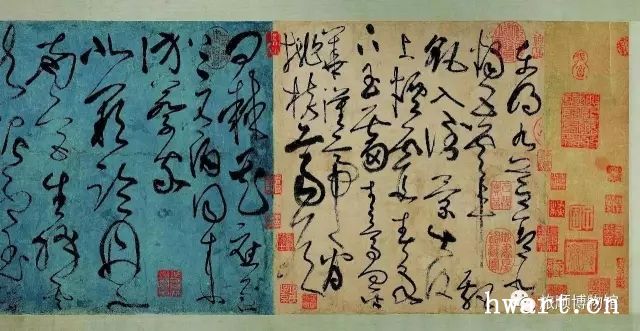 東明九芝蓋北
燭五雲車飄
飖入倒景出没
上煙霞春泉
下玉霤青鳥向金
華漢帝看
桃核齊侯
問棘花應逐
上元酒同來
訪蔡家
北闕臨丹水
南宫生絳雲
龍泥印玉
旅顺博物馆
hwart.cn